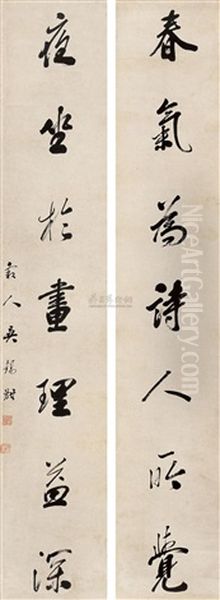 春氣為詩人所覺
夜坐於畫理益深
穀人吳錫麒